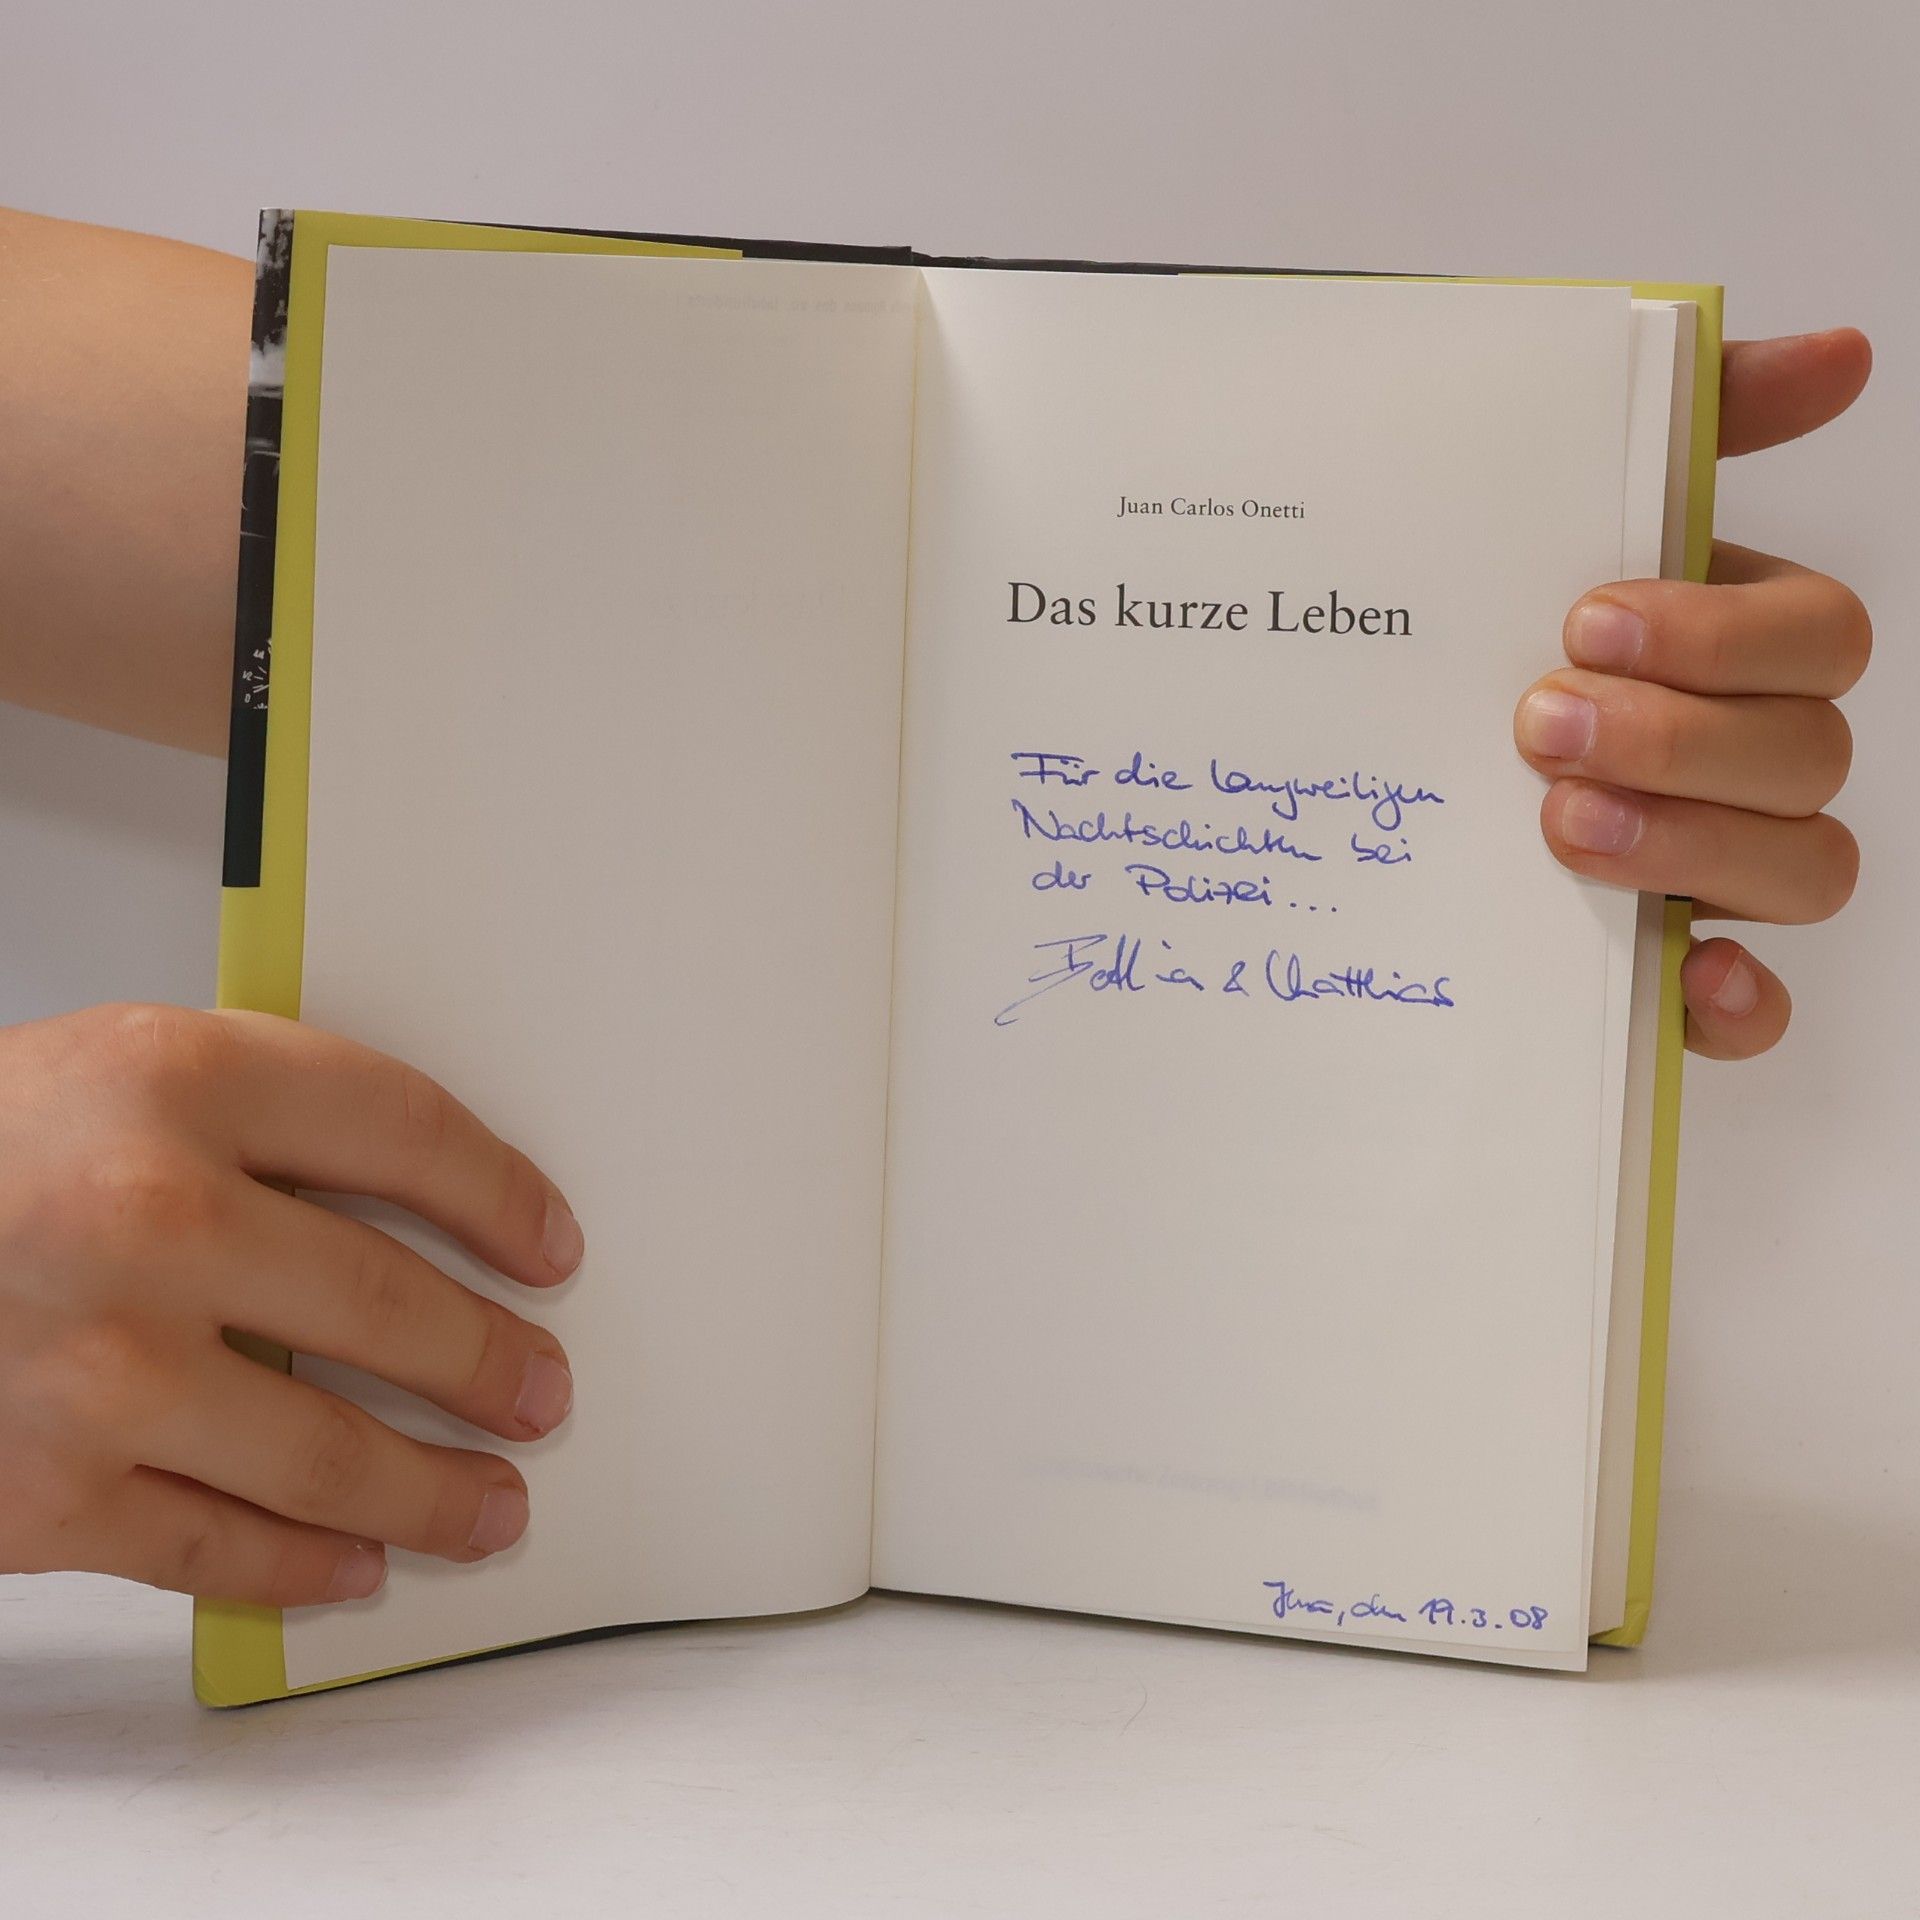 Juan Carlos Onetti
Das kurze Leben
Für die langweiligen
Nachtschichten bei
der Polizei...
Bettina & Matthias
Jena, den 19.3.08